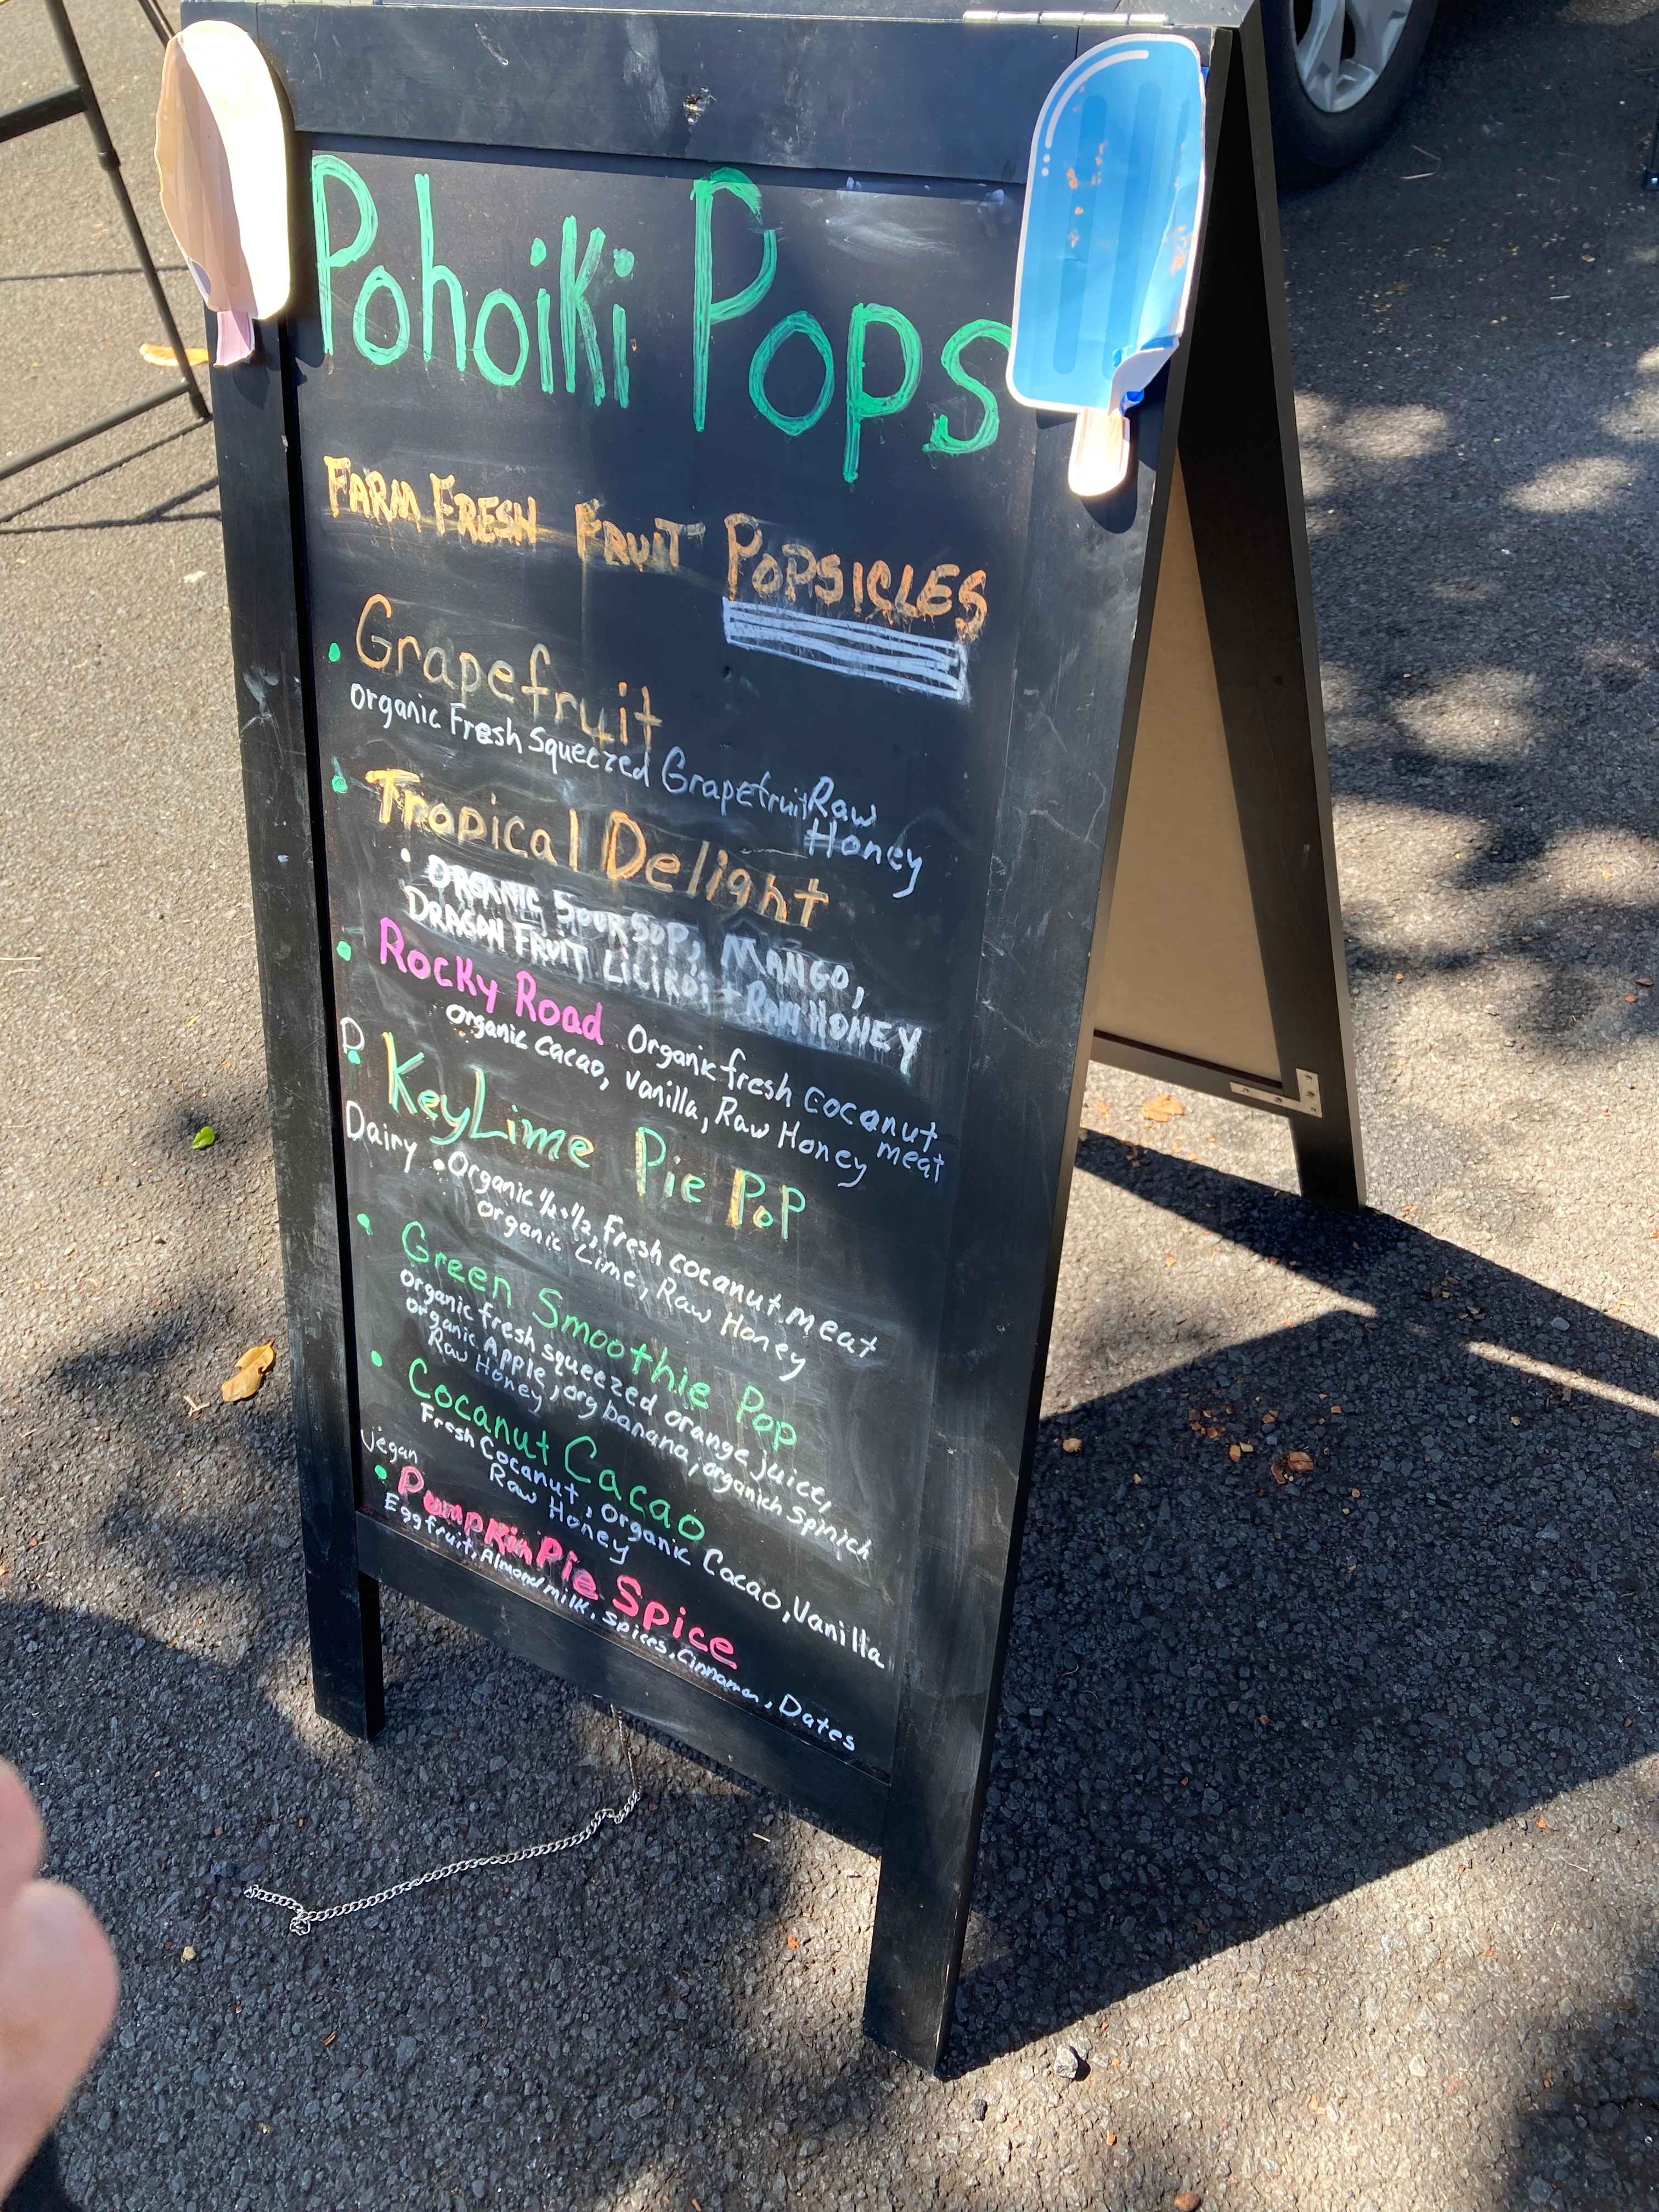 Pohoiki Pops
FARM FRESH FRUIT POPSICLES
Grapefruit
organic Fresh Squeezed Grapefruit Raw
Honey
Tropical Delight
ORGANIC SOURSOP, MANGO,
DRAGON FRUIT LILIKOI + RAW HONEY
Rocky Road Organic fresh cocanut
meat
organic cacao, vanilla, Raw Honey
D
KeyLime Pie PoP
Dairy
Organic ½+½, Fresh cocanut meat
organic Lime, Raw Honey
Green Smoothie Pop
organic fresh squeezed orange juice,
organic Apple, org banana, organich Spinich
Raw Honey
Cocanut Cacao
Fresh Cocanut, Organic Cacao, Vanilla
Raw Honey
Vegan
Pumpkin Pie Spice
Eggfruit, Almond milk, spices, cinnamon, Dates